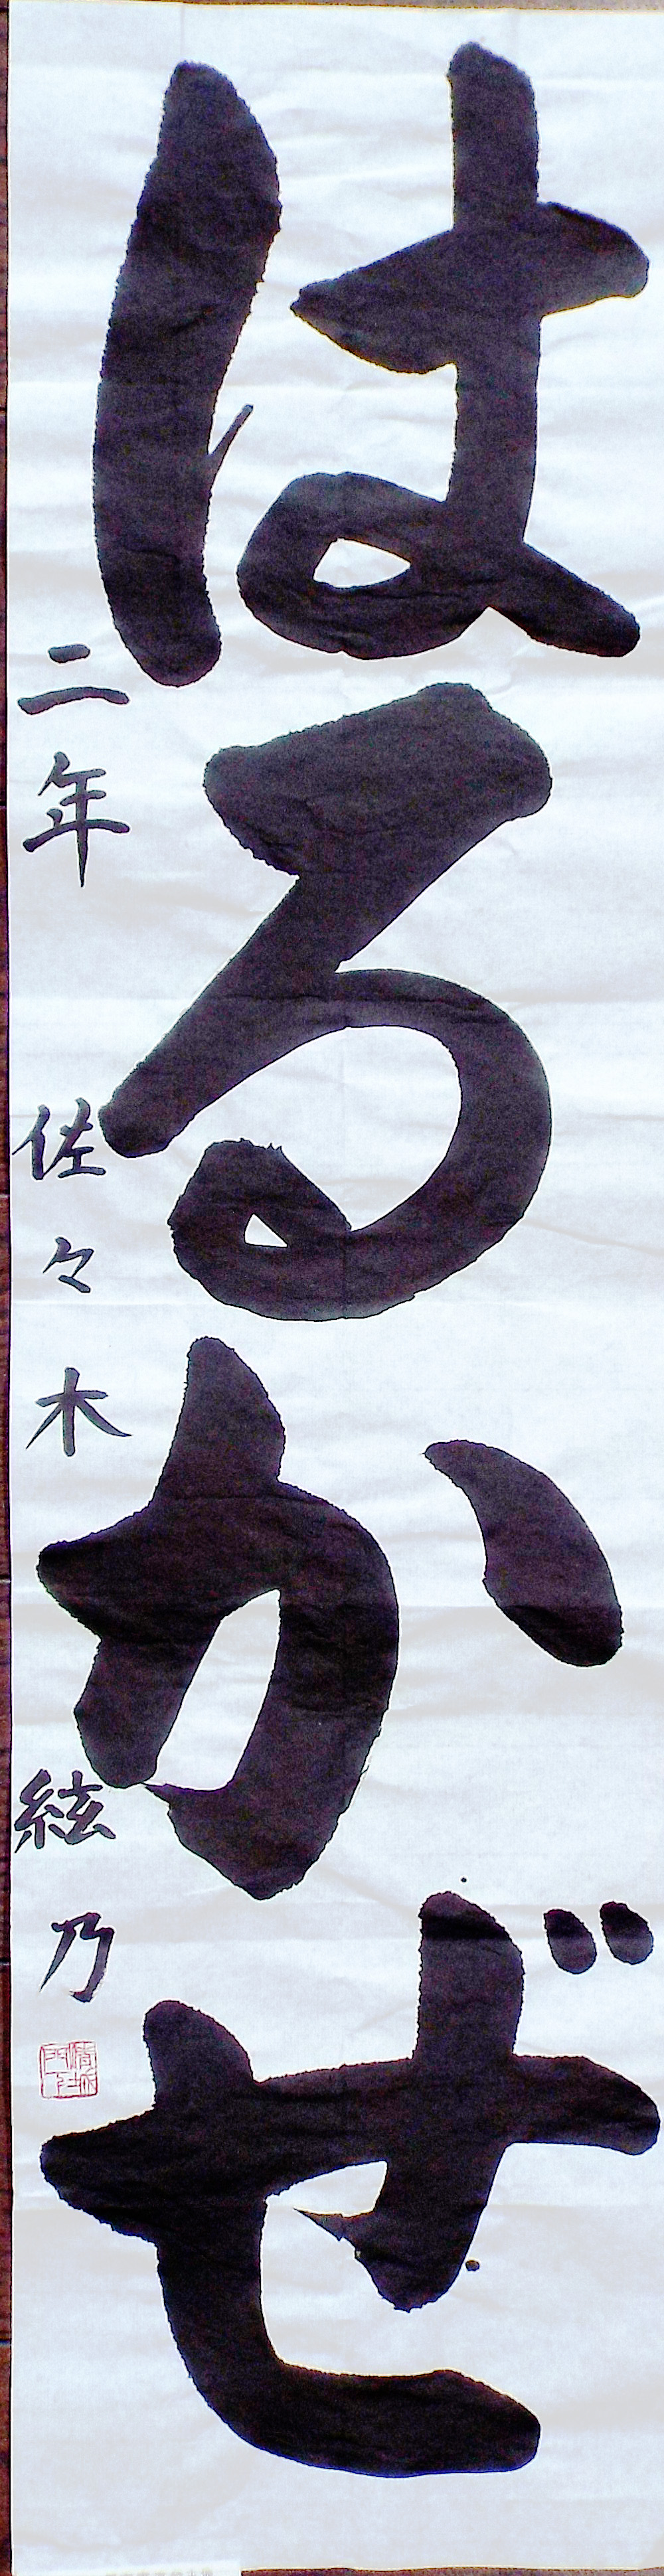 はるかぜ
二年 佐々木 絃乃